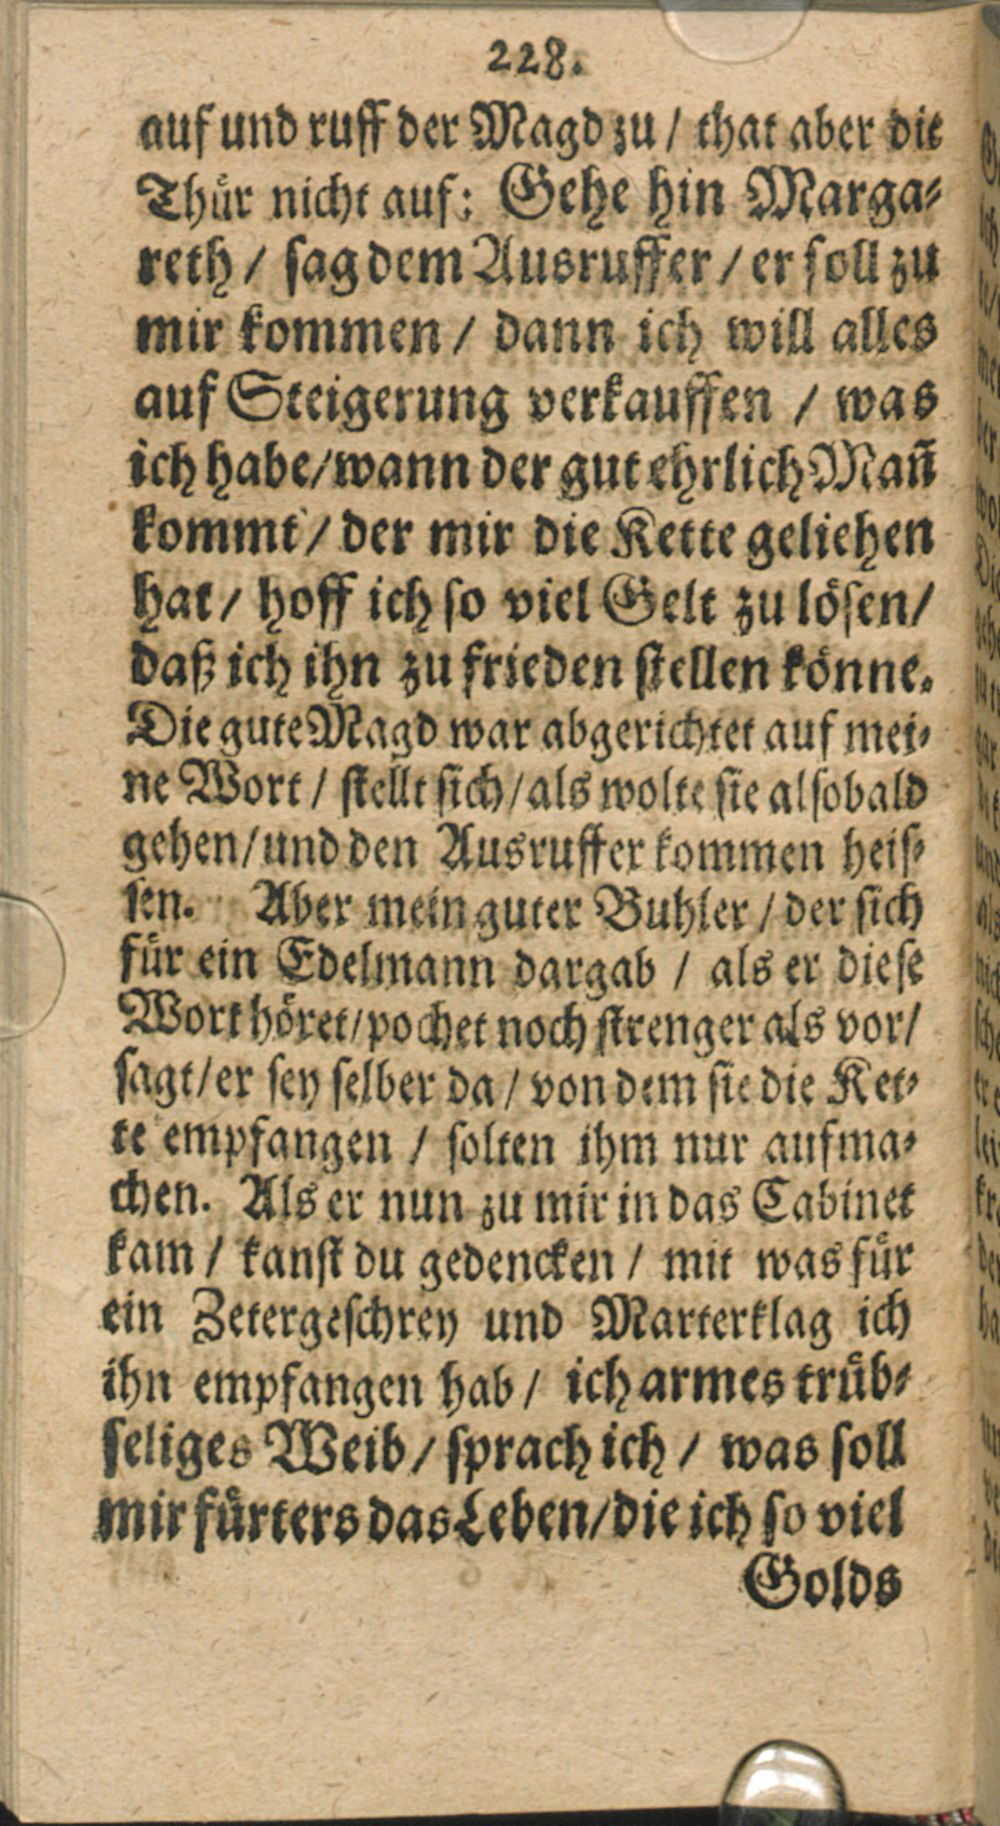 228.
auf und ruff der Magd zu / that aber die
Thür nicht auf: Gehe hin Marga-
reth / sag dem Ausruffer / er soll zu
mir kommen / dann ich will alles
auf Steigerung verkauffen / was
ich habe/wann der gut ehrlich Mañ
kommt / der mir die Kette geliehen
hat / hoff ich so viel Gelt zu lösen/
daß ich ihn zu frieden stellen könne.
Die gute Magd war abgerichtet auf mei-
ne Wort / stellt sich/als wolte sie alsobald
gehen/und den Ausruffer kommen heis-
sen. Aber mein guter Buhler / der sich
für ein Edelmann dargab / als er diese
Wort höret/pochet noch strenger als vor/
sagt/er sey selber da / von dem sie die Ket-
te empfangen / solten ihm nur aufma-
chen. Als er nun zu mir in das Cabinet
kam / kanst du gedencken / mit was für
ein Zetergeschrey und Marterklag ich
ihn empfangen hab / ich armes trüb-
seliges Weib / sprach ich / was soll
mir fürters das Leben/die ich so viel
Golds